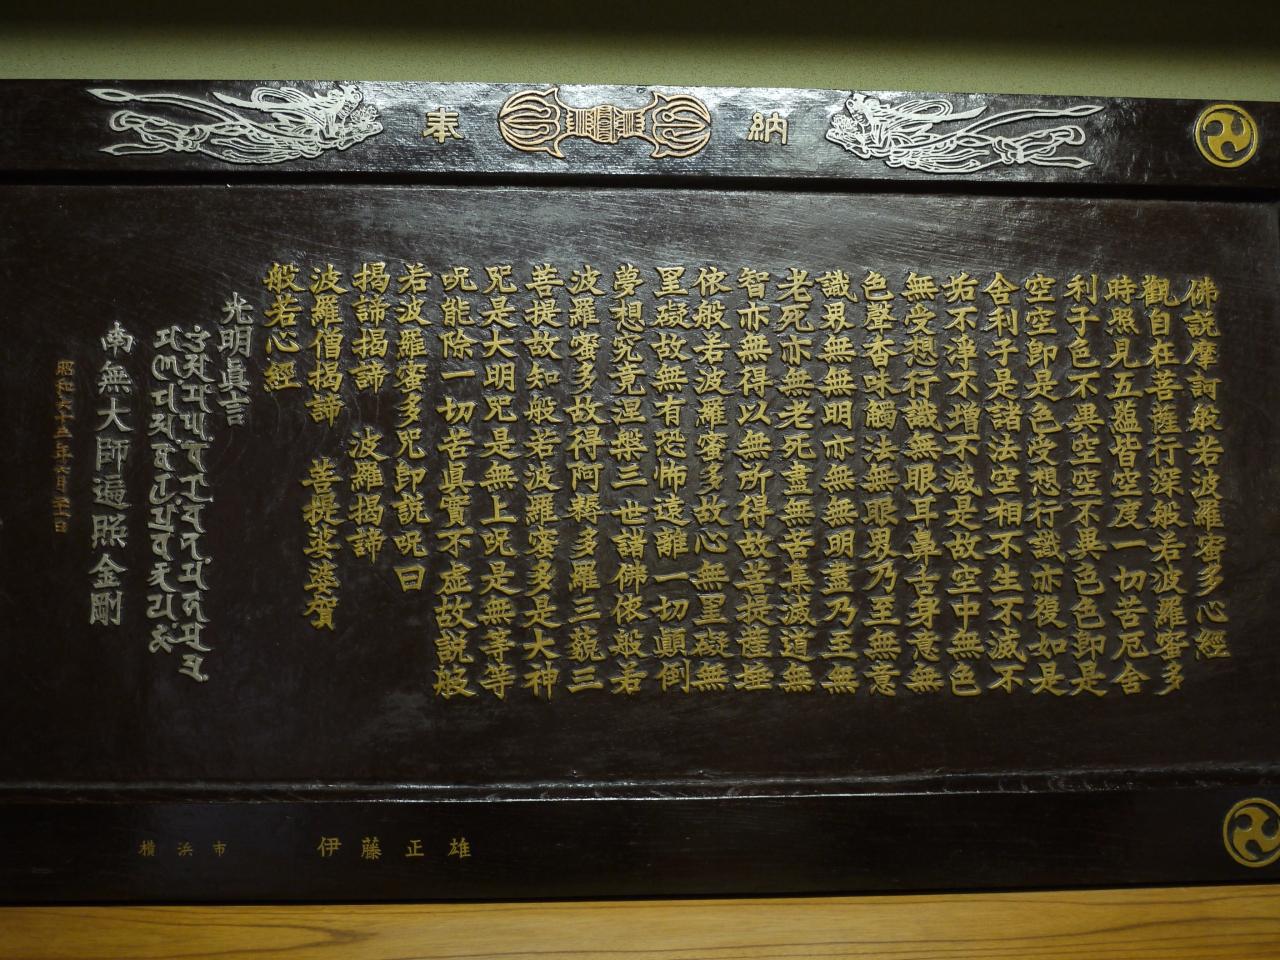 奉納
佛説摩訶般若波羅蜜多心經
觀自在菩薩行深般若波羅蜜多
時照見五蘊皆空度一切苦厄舎
利子色不異空空不異色色即是
空空即是色受想行識亦復如是
舎利子是諸法空相不生不滅不
垢不浄不增不減是故空中無色
無受想行識無眼耳鼻舌身意無
色聲香味觸法無眼界乃至無意
識界無無明亦無無明盡乃至無
老死亦無老死盡無苦集滅道無
智亦無得以無所得故菩提薩埵
依般若波羅蜜多故心無罣礙無
罣礙故無有恐怖遠離一切顚倒
夢想究竟涅槃三世諸佛依般若
波羅蜜多故得阿耨多羅三藐三
菩提故知般若波羅蜜多是大神
咒是大明咒是無上咒是無等等
呪能除一切苦眞實不虚故説般
若波羅蜜多咒即説呪曰
揭諦揭諦 波羅揭諦
波羅僧揭諦 菩提娑婆賀
般若心經
光明眞言
南無大師遍照金剛
伊藤正雄
横浜市